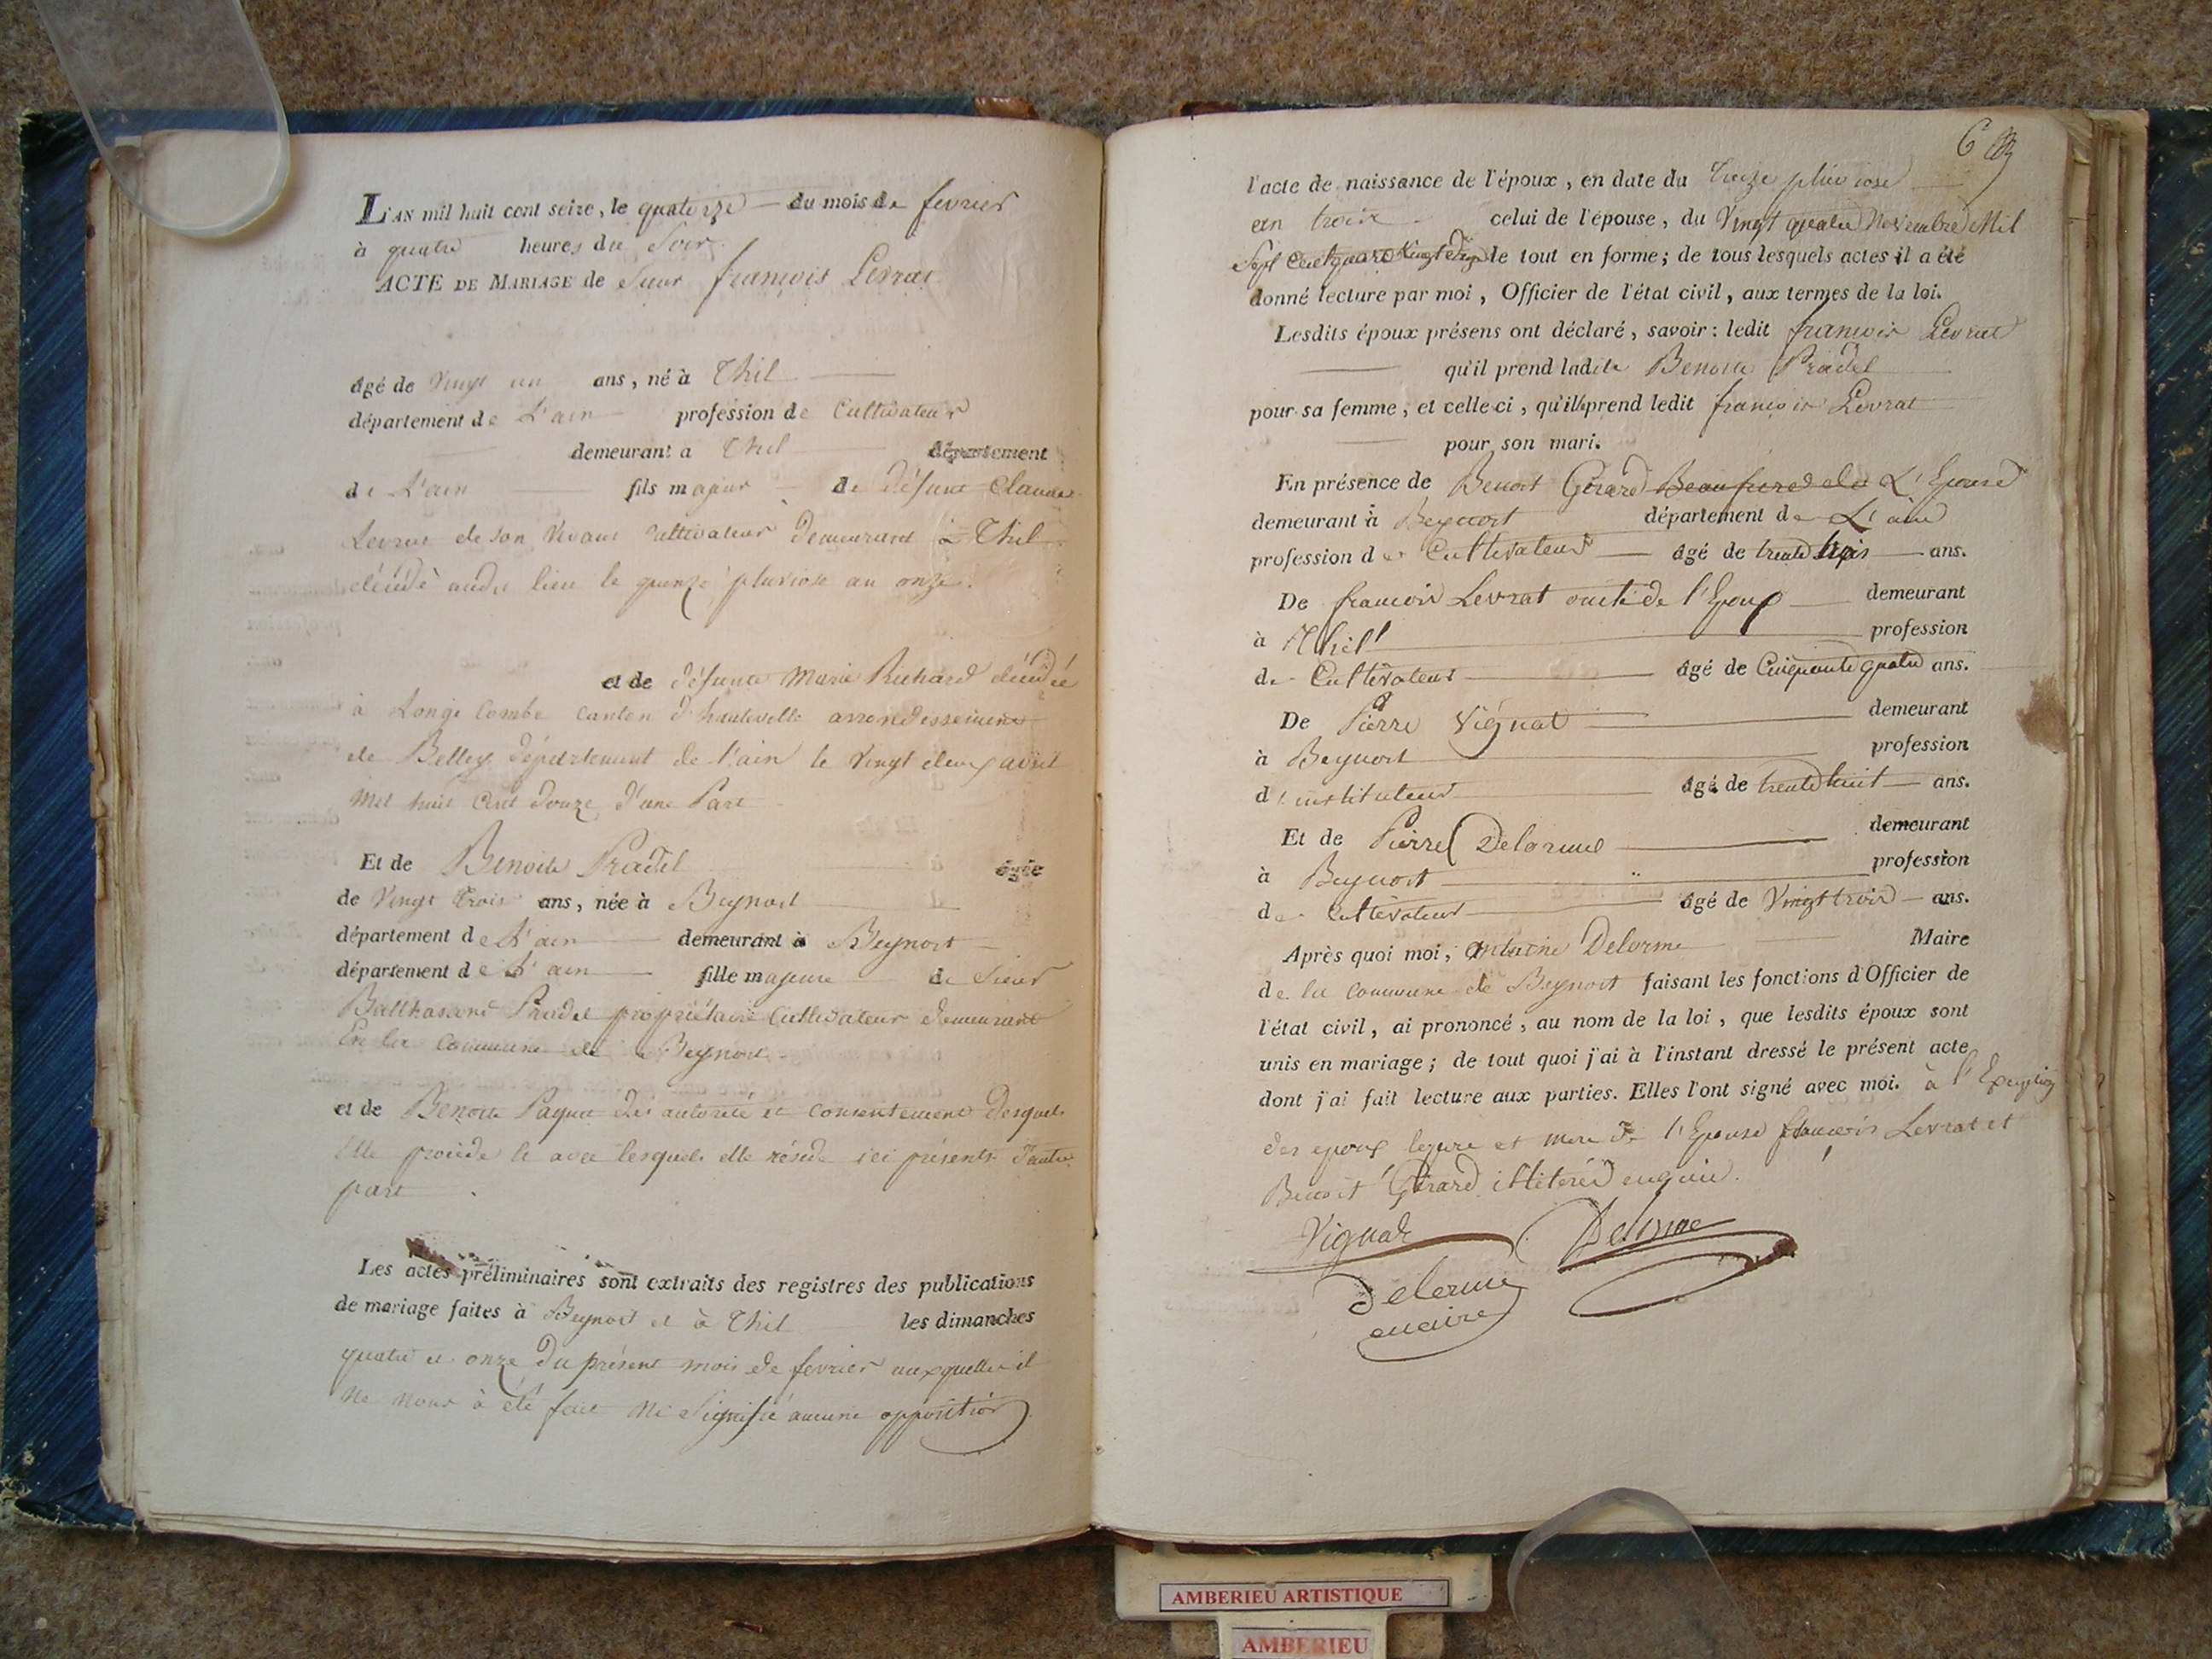 L'AN mil huit cent seize, le quatorze du mois de fevrier
à quatre heures du Soir
ACTE DE MARIAGE de Sieur françois Levrat
âgé de Vingt un ans, né à Thil
département de L'ain profession de Cultivateur
demeurant a Thil département
de L'ain fils majeur de défunt Claude
Levrat de son vivant Cultivateur demeurant à Thil
décédé audit lieu le quinze pluviose an onze.
et de défunte Marie Richard décédée
à Longe Combe Canton d'hauteville arrondissement
de Belley département de l'ain le vingt deux avril
Mil huit Cent douze d'une Part
Et de Benoite Pradel âgée
de Vingt trois ans, née à Beynost
département de L'ain demeurant à Beynost
département de L'ain fille majeure de Sieur
Balthasard Pradel propriétaire Cultivateur demeurant
En la Commune de Beynost
et de Benoite Payna des autorité et consentement desquels
Elle procède et avec lesquels elle réside ici présents d'autre
part
Les actes préliminaires sont extraits des registres des publications
de mariage faites à Beynost et à Thil les dimanches
quatre et onze du présent mois de fevrier auxquelles il
ne nous à été fait ni Signifié aucune opposition
6
l'acte de naissance de l'époux, en date du Treize pluviose
an trois celui de l'épouse, du Vingt quatre Novembre Mil
Sept Cent quatre Vingt Dix le tout en forme; de tous lesquels actes il a été
donné lecture par moi, Officier de l'état civil, aux termes de la loi.
Lesdits époux présens ont déclaré, savoir: ledit françois Levrat
qu'il prend ladite Benoite Pradel
pour sa femme, et celle-ci, qu'elle prend ledit françois Levrat
pour son mari.
En présence de Benoit Gérard Beaufrere de L'Epouse
demeurant à Beynost département de L'ain
profession de Cultivateur âgé de trente trois ans.
De françois Levrat oncle de l'Epoux demeurant
à Thil profession
de Cultivateur âgé de Cinquante quatre ans.
De Pierre Vignat demeurant
à Beynost profession
d'instituteur âgé de trente huit ans.
Et de Pierre Delorme demeurant
à Beynost profession
de Cultivateur âgé de Vingt trois ans.
Après quoi moi, Antoine Delorme Maire
de la Commune de Beynost faisant les fonctions d'Officier de
l'état civil, ai prononcé, au nom de la loi, que lesdits époux sont
unis en mariage; de tout quoi j'ai à l'instant dressé le présent acte
dont j'ai fait lecture aux parties. Elles l'ont signé avec moi. à l'Exception
des epoux le pere et mere de l'Epouse françois Levrat et
Benoit Gérard illiterés enquis.
Vignat Delorme
Delorme
maire
AMBERIEU ARTISTIQUE
AMBERIEU